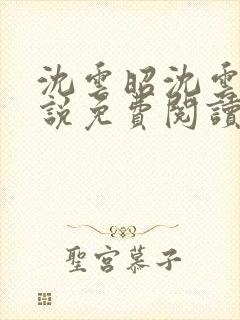 沈雲昭沈雲
說免費閱讀
聖宮慕子